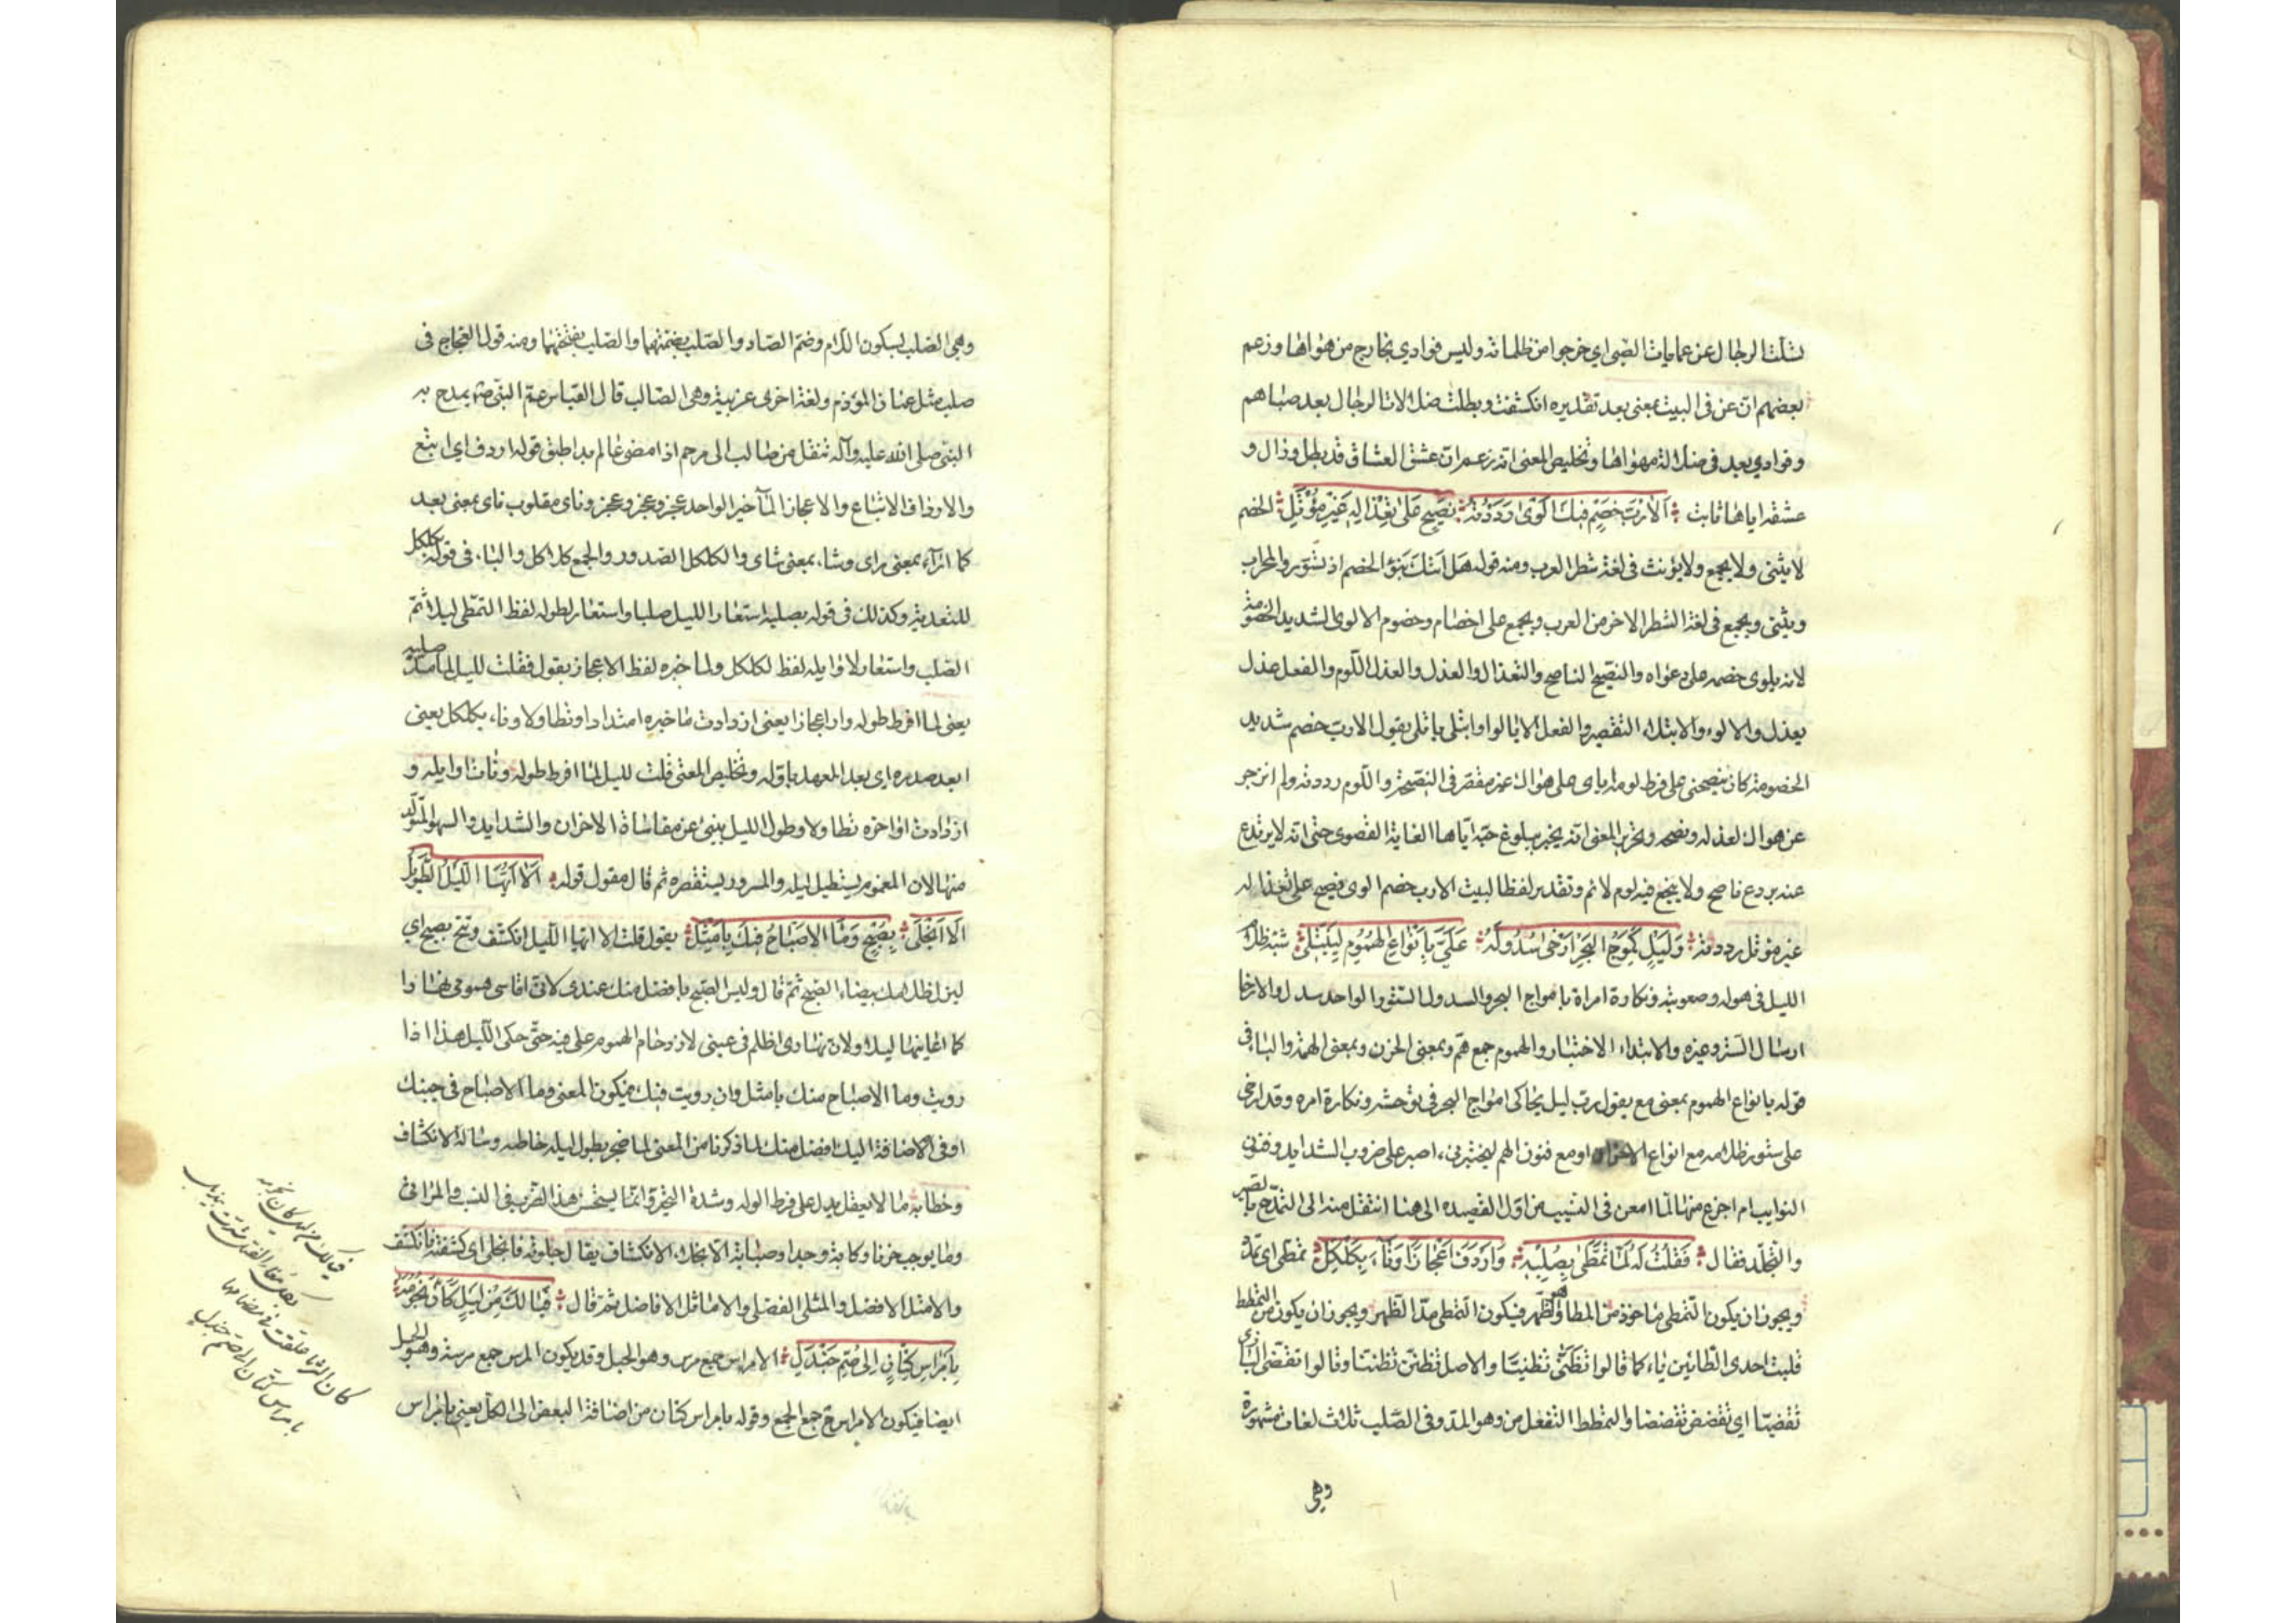 تسلت الرجال عن عمايات الصبى اي خرجوا من ظلماته وليس فوادي بخارج من هواها وزعم
بعضهم ان عن في البيت بمعنى بعد تقديره انكشفت وبطلت ضلالات الرجال بعد صباهم
وفوادي بعد في ضلالة هواها وتخليص المعنى انه زعم ان عشق العشاق قد بطل وزال و
عشقه اياها ثابت اَلَا رُبَّ خَصْمٍ فيكِ اَلْوى رَدَدْتُه نَصيحٍ عَلى تَعْذالِهِ غَيْرِ مُؤْتَلِ الخصم
لا يثنى ولا يجمع ولا يؤنث في لغة شطر العرب ومنه قوله هل اتيك نبؤ الخصم اذ تسوروا المحراب
ويثنى ويجمع في لغة الشطر الاخر من العرب ويجمع على اخصام وخصوم الالوى الشديد الخصومة
لانه يلوى خصمه على دعواه والنصيح الناصح والتعذال والعذل والعذل اللوم والفعل عذل
يعذل والالو والايتلاء التقصير والفعل الا يالو وايتلى ياتلى يقول الا رب خصم شديد
الخصومة كان ينصحني على فرط لومه اياى على هواك غير مقصر في النصيحة واللوم رددته ولم انزجر
عن هواك لعذله ونصحه وتحرير المعنى انه يخبر ببلوغ حبه اياها الغاية القصوى حتى انه لا يرتدع
عنه بردع ناصح ولا ينجع فيه لوم لائم وتقدير لفظ البيت الا رب خصم الوى نصيح على تعذاله
غير مؤتل رددته وَلَيْلٍ كَمَوْجِ البَحْرِ اَرْخى سُدُولَهُ عَلَيَّ بِاَنْواعِ الهُمُومِ لِيَبْتَلي شبه ظلام
الليل في هوله وصعوبته ونكارة امراة بامواج البحر والسدول الستور الواحد سدل والارخا
ارسال الستر وغيره والابتداء الاختبار والهموم جمع هم وبمعنى الحزن وبمعنى الهمة والبا في
قوله بانواع الهموم بمعنى مع يقول رب ليل يحاكى امواج البحر في توحشه ونكارة امره وقد ارخى
على ستور ظلامه مع انواع الاحزان او مع فنون الهم ليختبرني ااصبر على ضروب الشدايد وفنون
النوايب ام اجزع منها لما امعن في النسيب من اول القصيده الى هنا انتقل منه الى التمدح بالصبر
والتجلد فقال فَقُلْتُ لَهُ لَمَّا تَمَطَّى بِصُلْبِه وَاَرْدَفَ اَعْجازاً وَناءَ بِكَلْكَلِ تمطى اى تمدد
ويجوز ان يكون التمطى ماخوذ من المطا وهو الظهر فيكون التمطى مد الظهر ويجوز ان يكون من التمطط
قلبت احدى الطائين ياء كما قالوا تظنى تظنيا والاصل تظنن تظننا وقالوا تقضى البازى
تقضيا اي تقضض تقضضا والتمطط التفعل من وهو المد وفي الصلب ثلاث لغات مشهورة
وهي
وهي الصلب بسكون اللام وضم الصاد والصلب بضمتهما والصلب بفتحتهما ومنه قول العجاج في
صلب مثل عنان المؤدم ولغة اخرى غريبة وهي الصالب قال العباس عم النبي ص يمدح به
النبي صلى الله عليه وآله تنقل من صالب الى رحم اذا مضى عالم بدا طبق قوله اردف اي اتبع
والارداف الاتباع والاعجاز المآخير الواحد عجز وعجز وعجز وناى مقلوب ناى بمعنى بعد
كما راء بمعنى راى وشاء بمعنى شاى والكلكل الصدور والجمع كلاكل والباء في قوله بكلكل
للتعدية وكذلك في قوله بصلبه استعار الليل صلبا واستعار لطوله لفظ التمطى ليلائم
الصلب واستعار لاوايله لفظ الكلكل ولماخيره لفظ الاعجاز يقول فقلت لليل لما مد صلبه
يعنى لما افرط طوله واردف اعجازا يعنى ازدادت ماخيره امتدادا وتطاولا وناء بكلكل يعنى
ابعد صدره اى بعد العهد باوله وتخليص المعنى قلت لليل لما افرط طوله وناءت اوايله و
ازدادت اواخره تطاولا وطول الليل ينبئ عن مقاساة الاحزان والشدايد والسهر المتولد
منها لان المغموم يستطيل ليله والمسرور يستقصره ثم قال مقول قوله اَلَا اَيُّهَا اللَّيْلُ الطَّويلُ
اَلَا انْجَلى بِصُبْحٍ وَمَا الاِصْباحُ فيكَ بِاَمْثَلِ يقول قلت الا ايها الليل انكشف وتنح بصبح اي
ليزل ظلامك بضياء الصبح ثم قال وليس الصبح بافضل منك عندى لاني اقاسى همومى نهارا
كما اعاينها ليلا ولان نهارى اظلم في عينى لازدحام الهموم على فيه حتى حكى الليل هذا اذا
رويت وما الاصباح منك بامثل وان رويت فيك فيكون المعنى وما الاصباح في جنبك
او في الاضافة اليك افضل منك لما ذكرنا من المعنى لما ضجر بطول ليله خاطبه وساله الانكشاف
وخطابه ما لا يعقل يدل على فرط الوله وشدة التحير وانما يستحسن هذا الضرب في النسيب والمراثى
وما يوجب حزنا وكابة ووجدا وصبابة الانجلاء الانكشاف يقال جلوته فانجلى اى كشفته فانكشف
والامثل الافضل والمثلى الفضلى والاماثل الافاضل ثم قال فَيَالَكَ مِنْ لَيْلٍ كَاَنَّ نُجُومَهُ
بِاَمْراسِ كَتّانٍ اِلى صُمِّ جَنْدَلِ الامراس جمع مرس وهو الحبل وقد يكون المرس جمع مرسة وهو الحبل
ايضا فيكون الامراس ح جمع الجمع وقوله بامراس كتان من اضافة البعض الى الكل يعنى بامراس
فيالك من ليل كان نجومه
بكل مغار الفتل شدت بيذبل
كان الثريا علقت في مصامها
بامراس كتان الى صم جندل